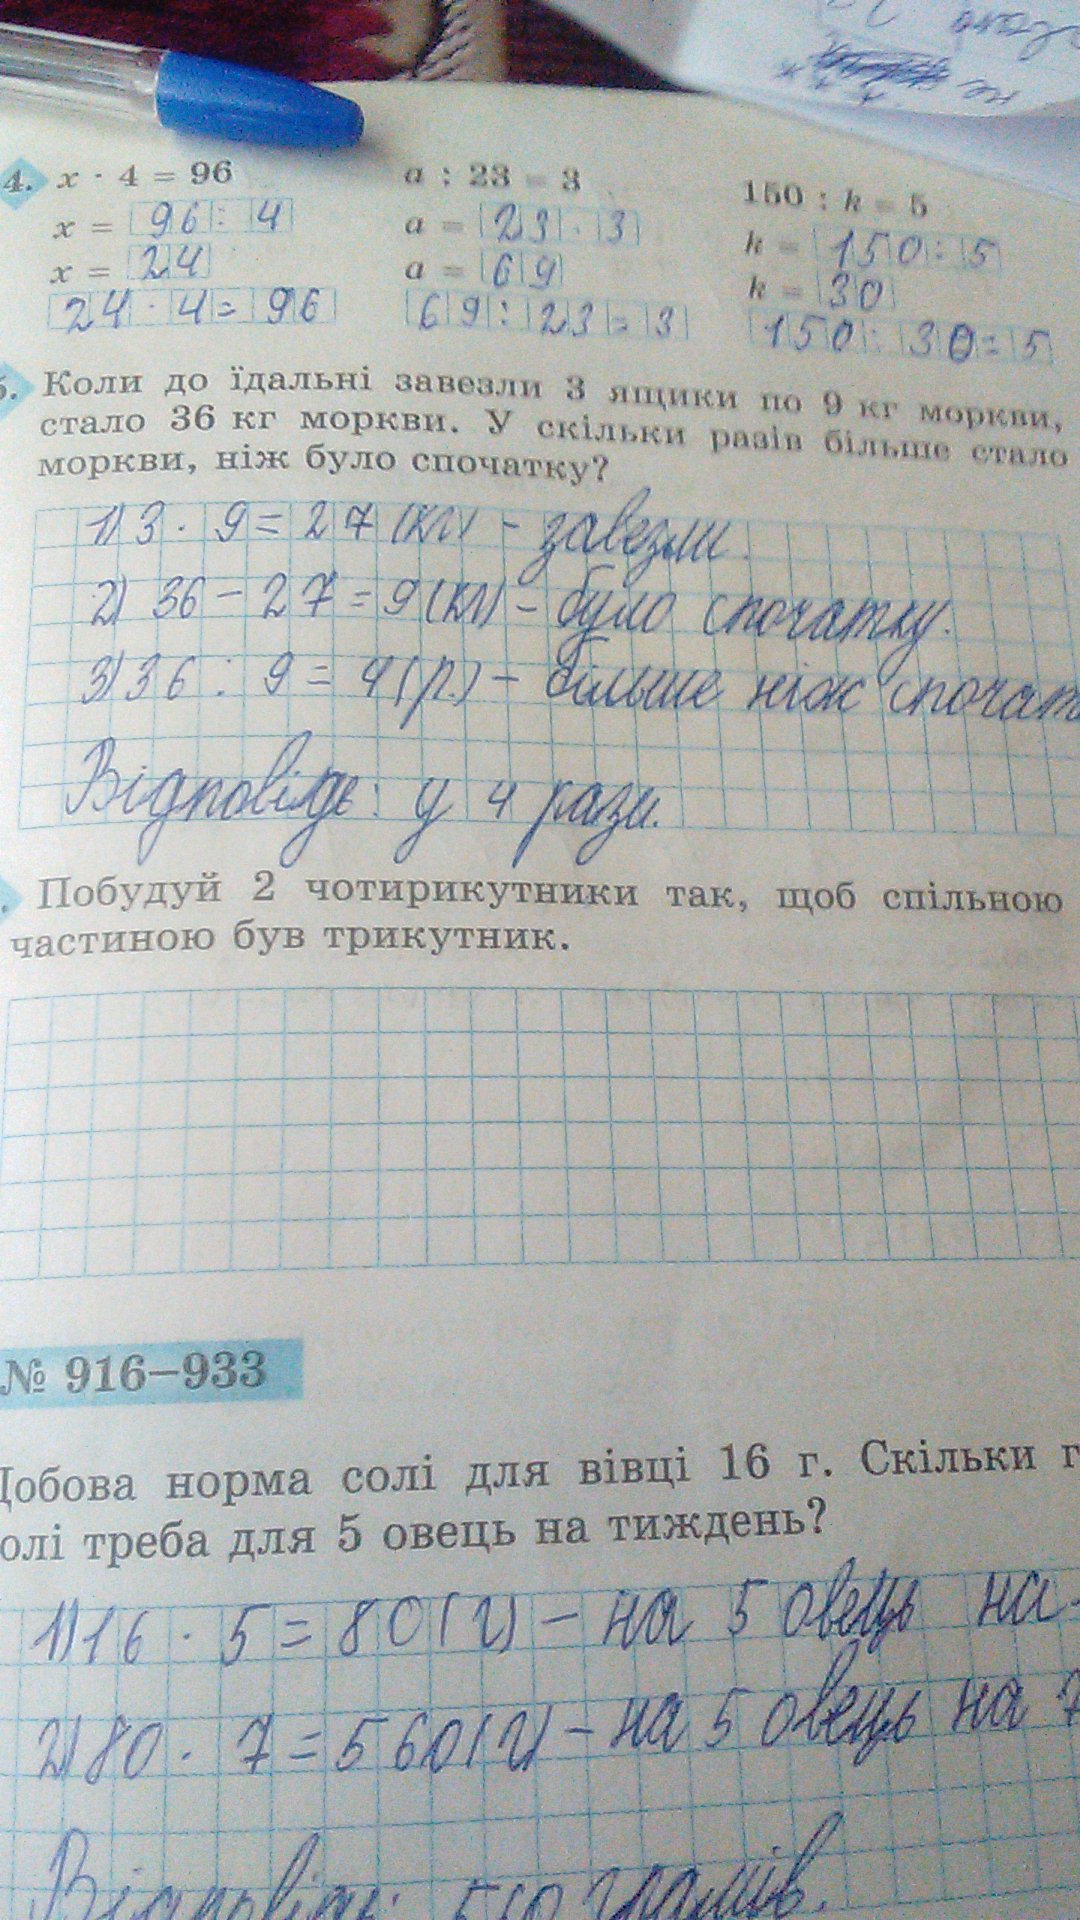 4. x · 4 = 96
x = 96 : 4
x = 24
24 · 4 = 96
a : 23 = 3
a = 23 · 3
a = 69
69 : 23 = 3
150 : k = 5
k = 150 : 5
k = 30
150 : 30 = 5
5. Коли до їдальні завезли 3 ящики по 9 кг моркви,
стало 36 кг моркви. У скільки разів більше стало
моркви, ніж було спочатку?
1) 3 · 9 = 27 (кг) – завезли.
2) 36 – 27 = 9 (кг) – було спочатку.
3) 36 : 9 = 4 (р.) – більше ніж спочат
Відповідь: у 4 рази.
Побудуй 2 чотирикутники так, щоб спільною
частиною був трикутник.
№ 916–933
Добова норма солі для вівці 16 г. Скільки г
олі треба для 5 овець на тиждень?
1) 16 · 5 = 80 (г) – на 5 овець на
2) 80 · 7 = 560 (г) – на 5 овець на 7
Відповідь: 560 грамів.